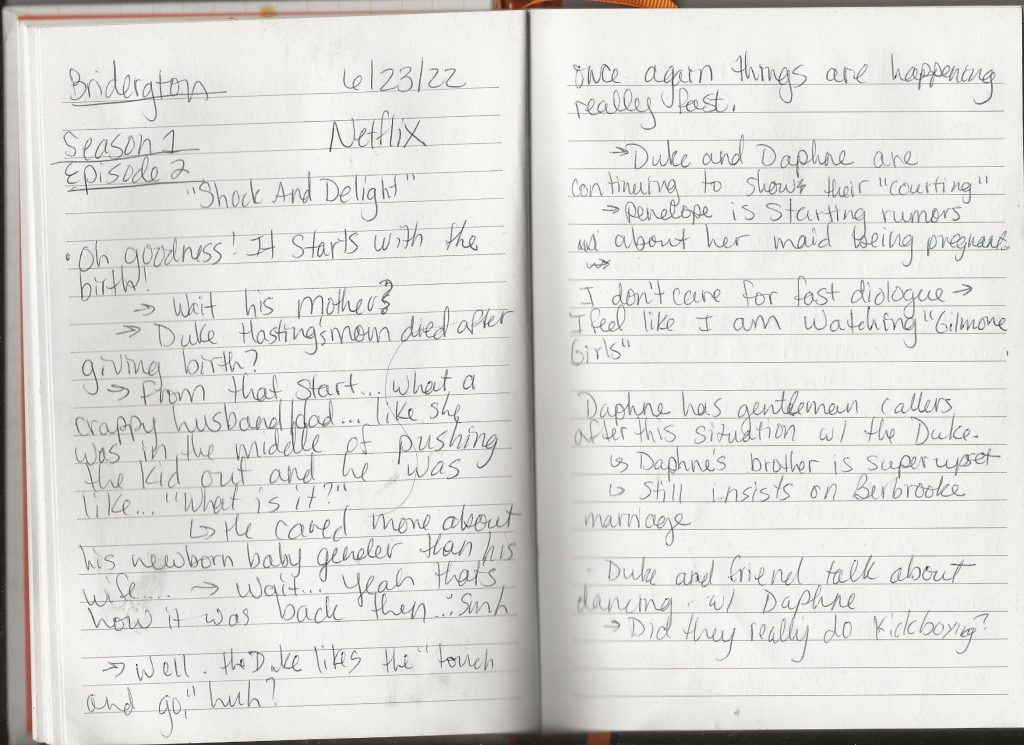 Bridergton 6/23/22
Season 1 Netflix
Episode 2
"Shock And Delight"
• Oh goodness! It starts with the
birth!
→ Wait his mother?
→ Duke Hastings mom died after
giving birth?
→ From that start... what a
crappy husband/dad... like she
was in the middle of pushing
the kid out and he was
like... "What is it?"
↳ He cared more about
his newborn baby gender than his
wife.... → Wait... yeah thats
how it was back then...
→ Well. the Duke likes the "touch
and go," huh?
once again things are happening
really fast.
→ Duke and Daphne are
continuing to show their "courting"
→ Penelope is starting rumors
about her maid being pregnant
I don't care for fast diologue →
I feel like I am watching "Gilmore
Girls"
Daphne has gentleman callers
after this situation w/ the Duke.
↳ Daphne's brother is super upset
↳ Still insists on Berbrooke
marriage
Duke and friend talk about
dancing w/ Daphne
→ Did they really do kickboxing?